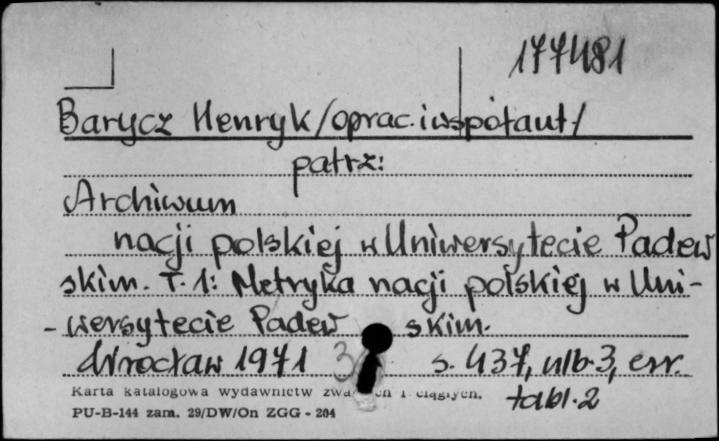 177481
Barycz Henryk/oprac. i współaut./
patrz:
Archiwum
nacji polskiej w Uniwersytecie Padew
skim. T. 1: Metryka nacji polskiej w Uni-
-wersytecie Padew skim.
Wrocław 1971 s. 437, nlb. 3, err.
tabl. 2
Karta katalogowa wydawnictw i ciągłych.
PU-B-144 zam. 29/DW/On ZGG - 204